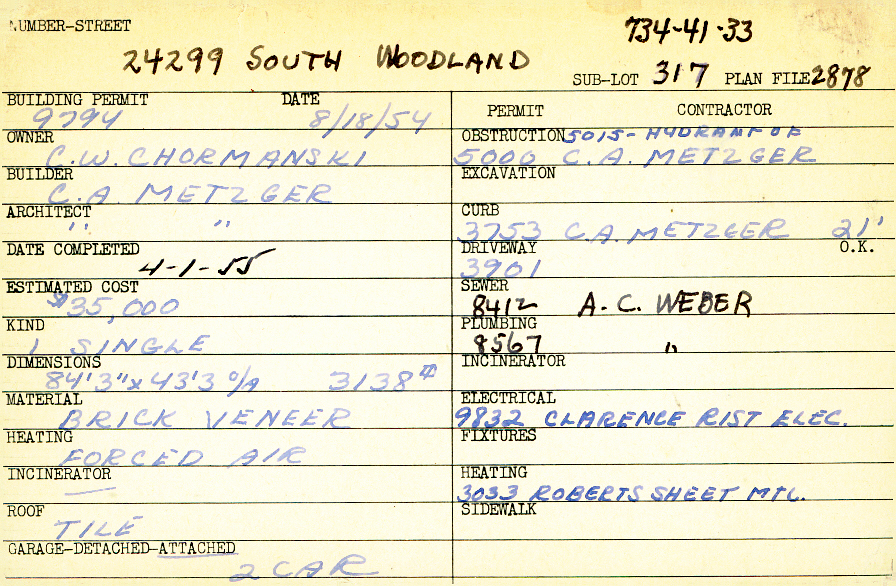 NUMBER-STREET
734-41-33
24299 SOUTH WOODLAND
SUB-LOT 317 PLAN FILE 2878
BUILDING PERMIT DATE
9794 8/18/54
OWNER
C.W. CHORMANSKI
BUILDER
C.A. METZGER
ARCHITECT
" "
DATE COMPLETED
4-1-55
ESTIMATED COST
$35,000
KIND
1 SINGLE
DIMENSIONS
84'3"x43'3 O/A 3138#
MATERIAL
BRICK VENEER
HEATING
FORCED AIR
INCINERATOR
—
ROOF
TILE
GARAGE-DETACHED-ATTACHED
2 CAR
PERMIT CONTRACTOR
OBSTRUCTION 5015-HYDRANT OF
5000 C.A. METZGER
EXCAVATION
CURB
3753 C.A. METZGER 21'
DRIVEWAY O.K.
3901
SEWER
8412 A.C. WEBER
PLUMBING
8567 "
INCINERATOR
ELECTRICAL
9832 CLARENCE RIST ELEC.
FIXTURES
HEATING
3033 ROBERTS SHEET MTL.
SIDEWALK